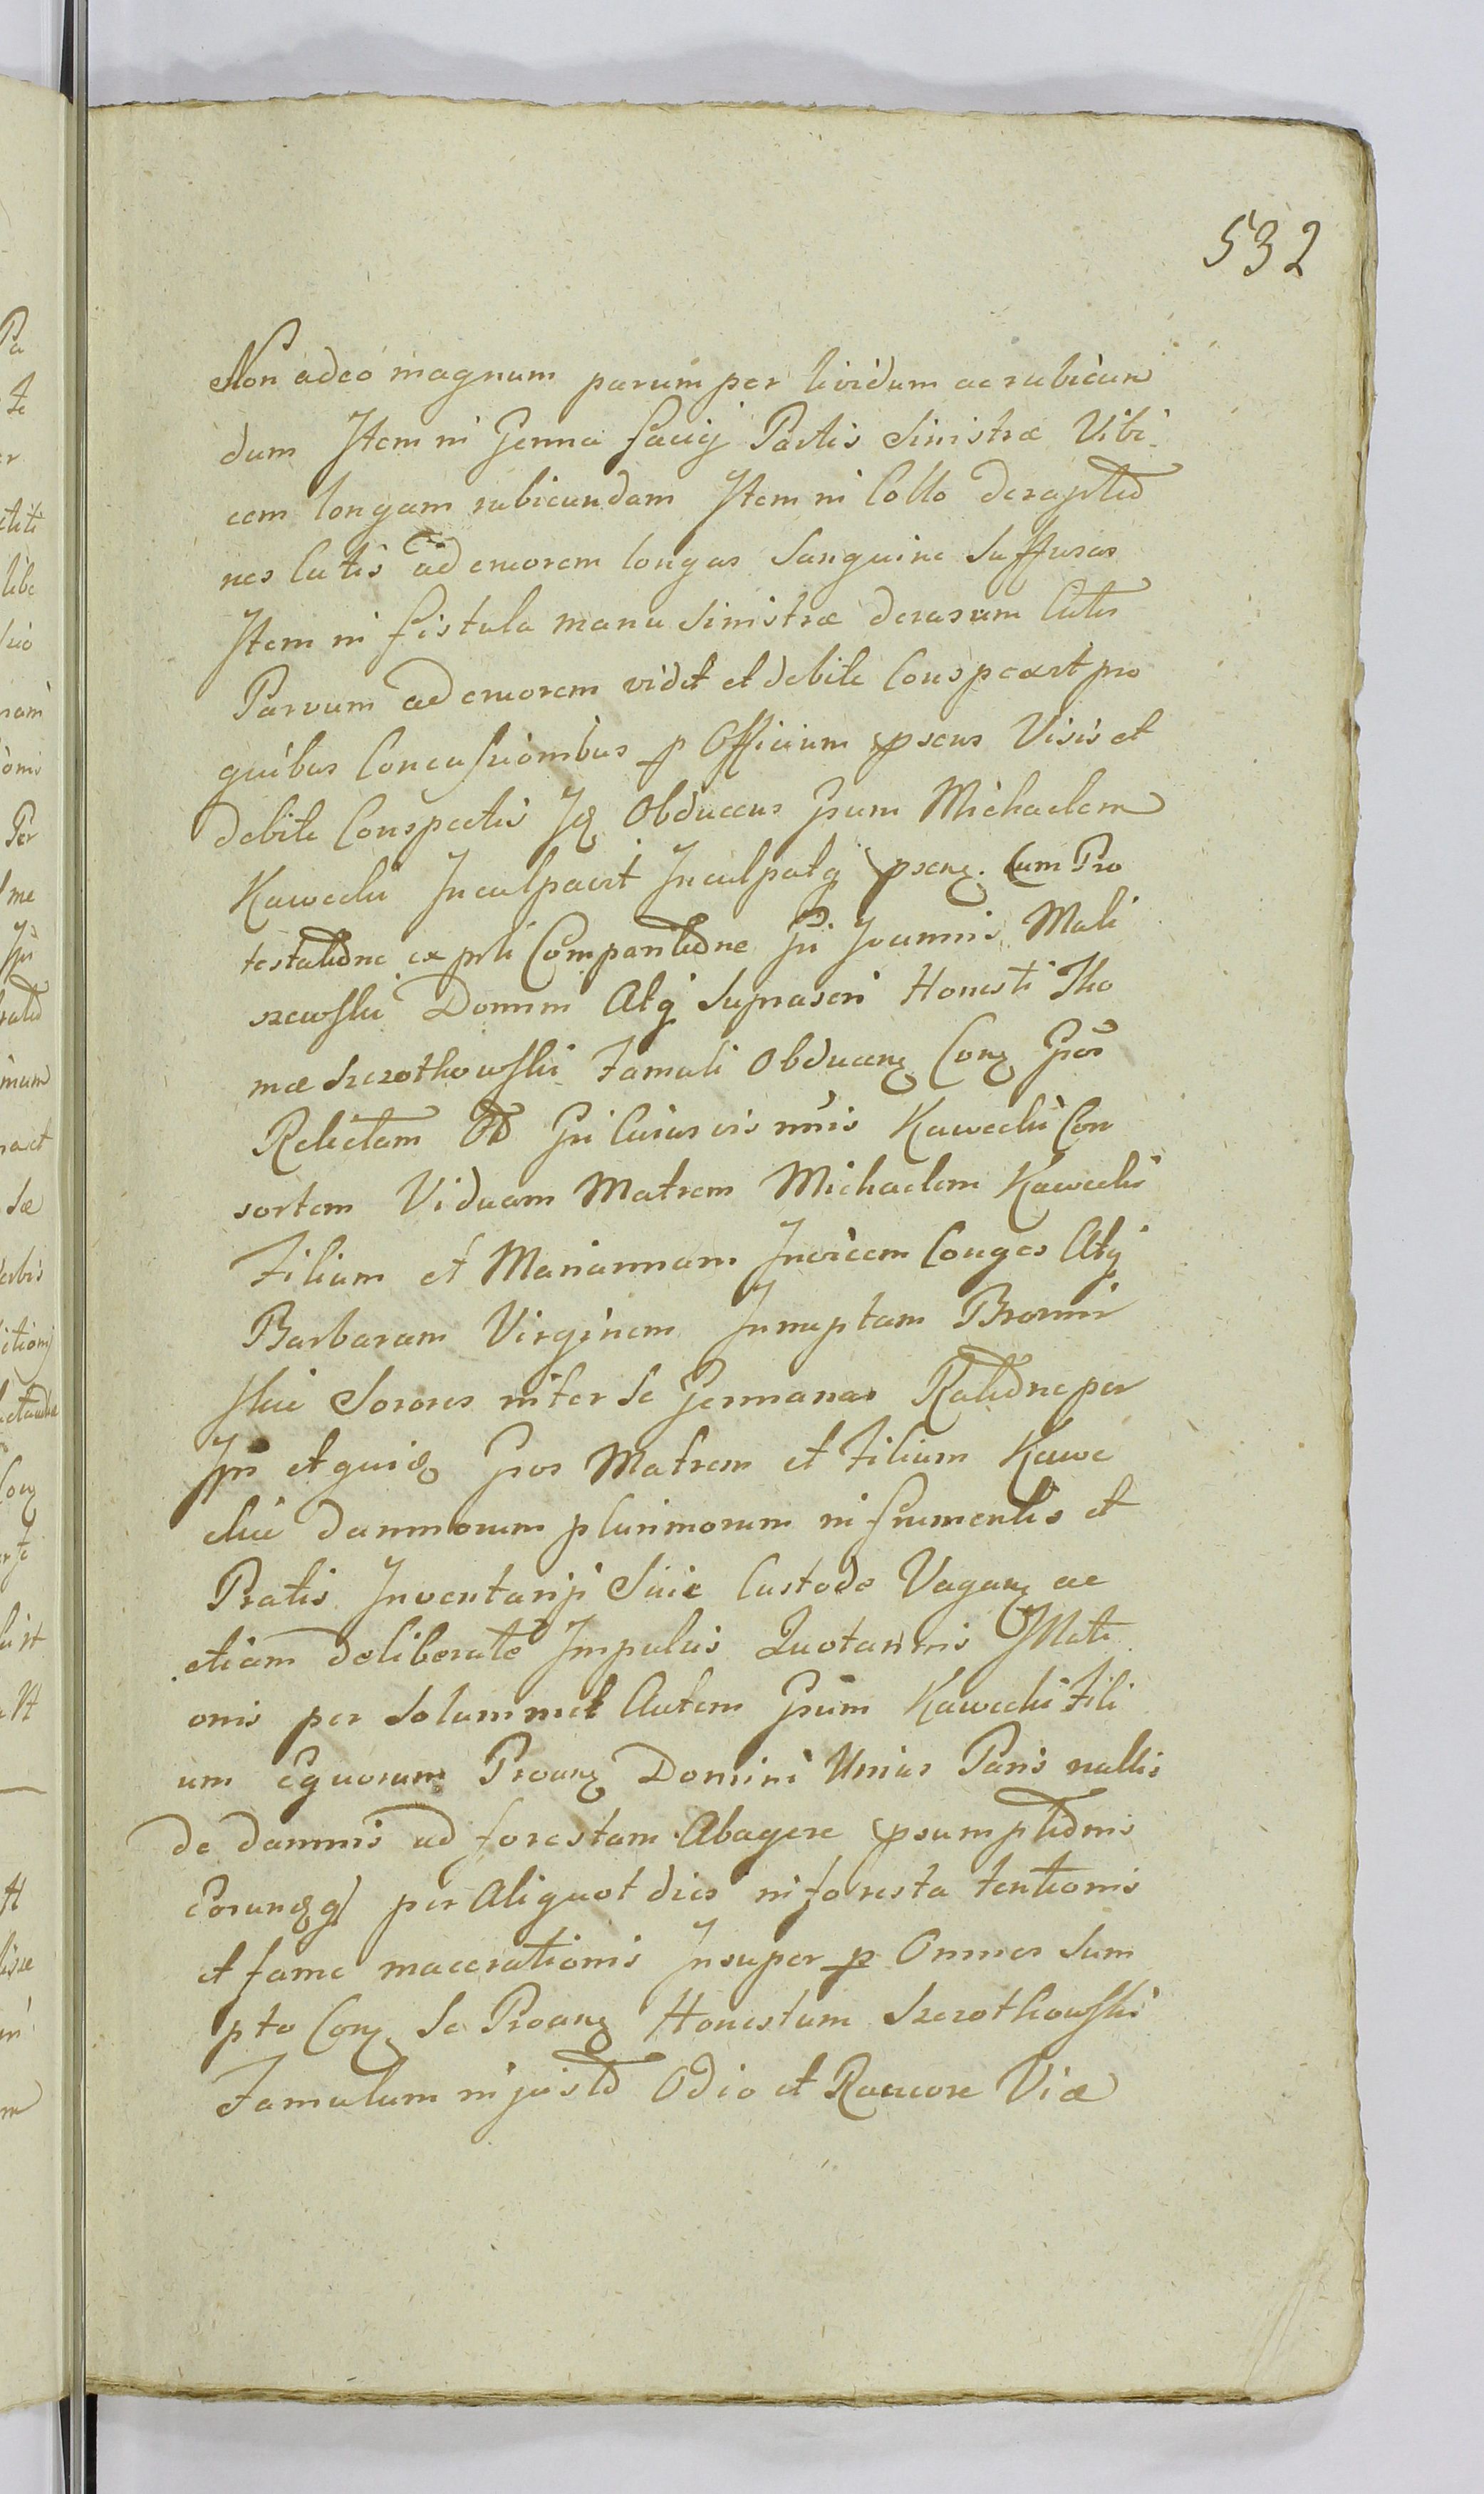 532
Non adeo magnum parumper lividum ac rubicun
dum Item in Genna faciij Partis Sinistræ Vibi
cem longam rubicundam Item in Collo
nes Cutis ad cruorem longas Sanguine Suffusas
Item in fistula manu Sinistræ derasum Cutis
Parvum ad cruorem vidit et debite Conspexit pro
quibus Concussionibus p Officium pseus Visis et
debite Conspectis Obducens Gsum Michaelem
Kawecki Inculpavit Inculpatq psenz. Cum Pro
testatione ex prti Compantione Gsi Joannis Mali
szewski Domini Atq Suprascri Honesti Tho
mæ Szczothowski Famuli Obducenz Conz Gsos
Relictam Gsi Cuiusvis nnis Kawecki Con
sortem Viduam Matrem Michaelem Kawecki
Filium et Mariannam Invicem Conges Atq
Barbaram Virginem Innuptam Bromir
skie Sorores inter se Germanas Ratione per
Ips et quidz Gsos Matrem et Filium Kawe
ckie damnorum plurimorum in frumentis et
Pratis Inventarij Sui Custode Vaganz ac
etiam deliberate Impulsis Quotannis Mati
onis per Solummet Autem Gsum Kawecki Fili
um Equorum Proanz Domini Unius Paris nullis
de damnis ad forestam Abagere psumptionis
Eorundzq per Aliquot dies in foresta tentionis
et fame macerationis Insuper p Omnes Sum
pto Conz Se Proanz Honestum Szczothowski
Famulum injusto Odio et Rancore Viæ